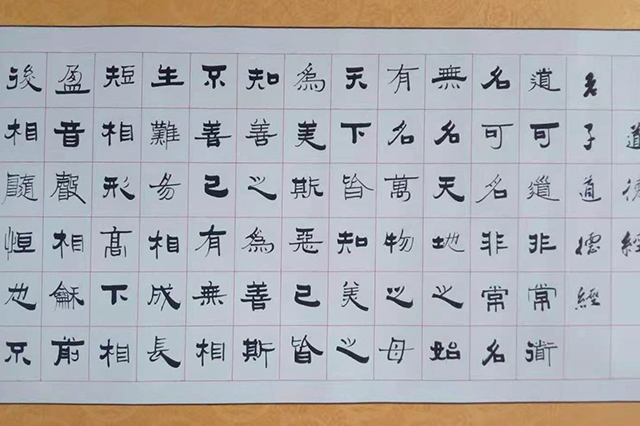 道德經
老子道德經
道可道非常衜
名可名非常名
無名天地之始
有名萬物之母
天下皆知美之
為美斯惡已皆
知善之為善斯
不善已有無相
生難易相成長
短相形髙下相
盈音聲相龢前
後相隨恒也不